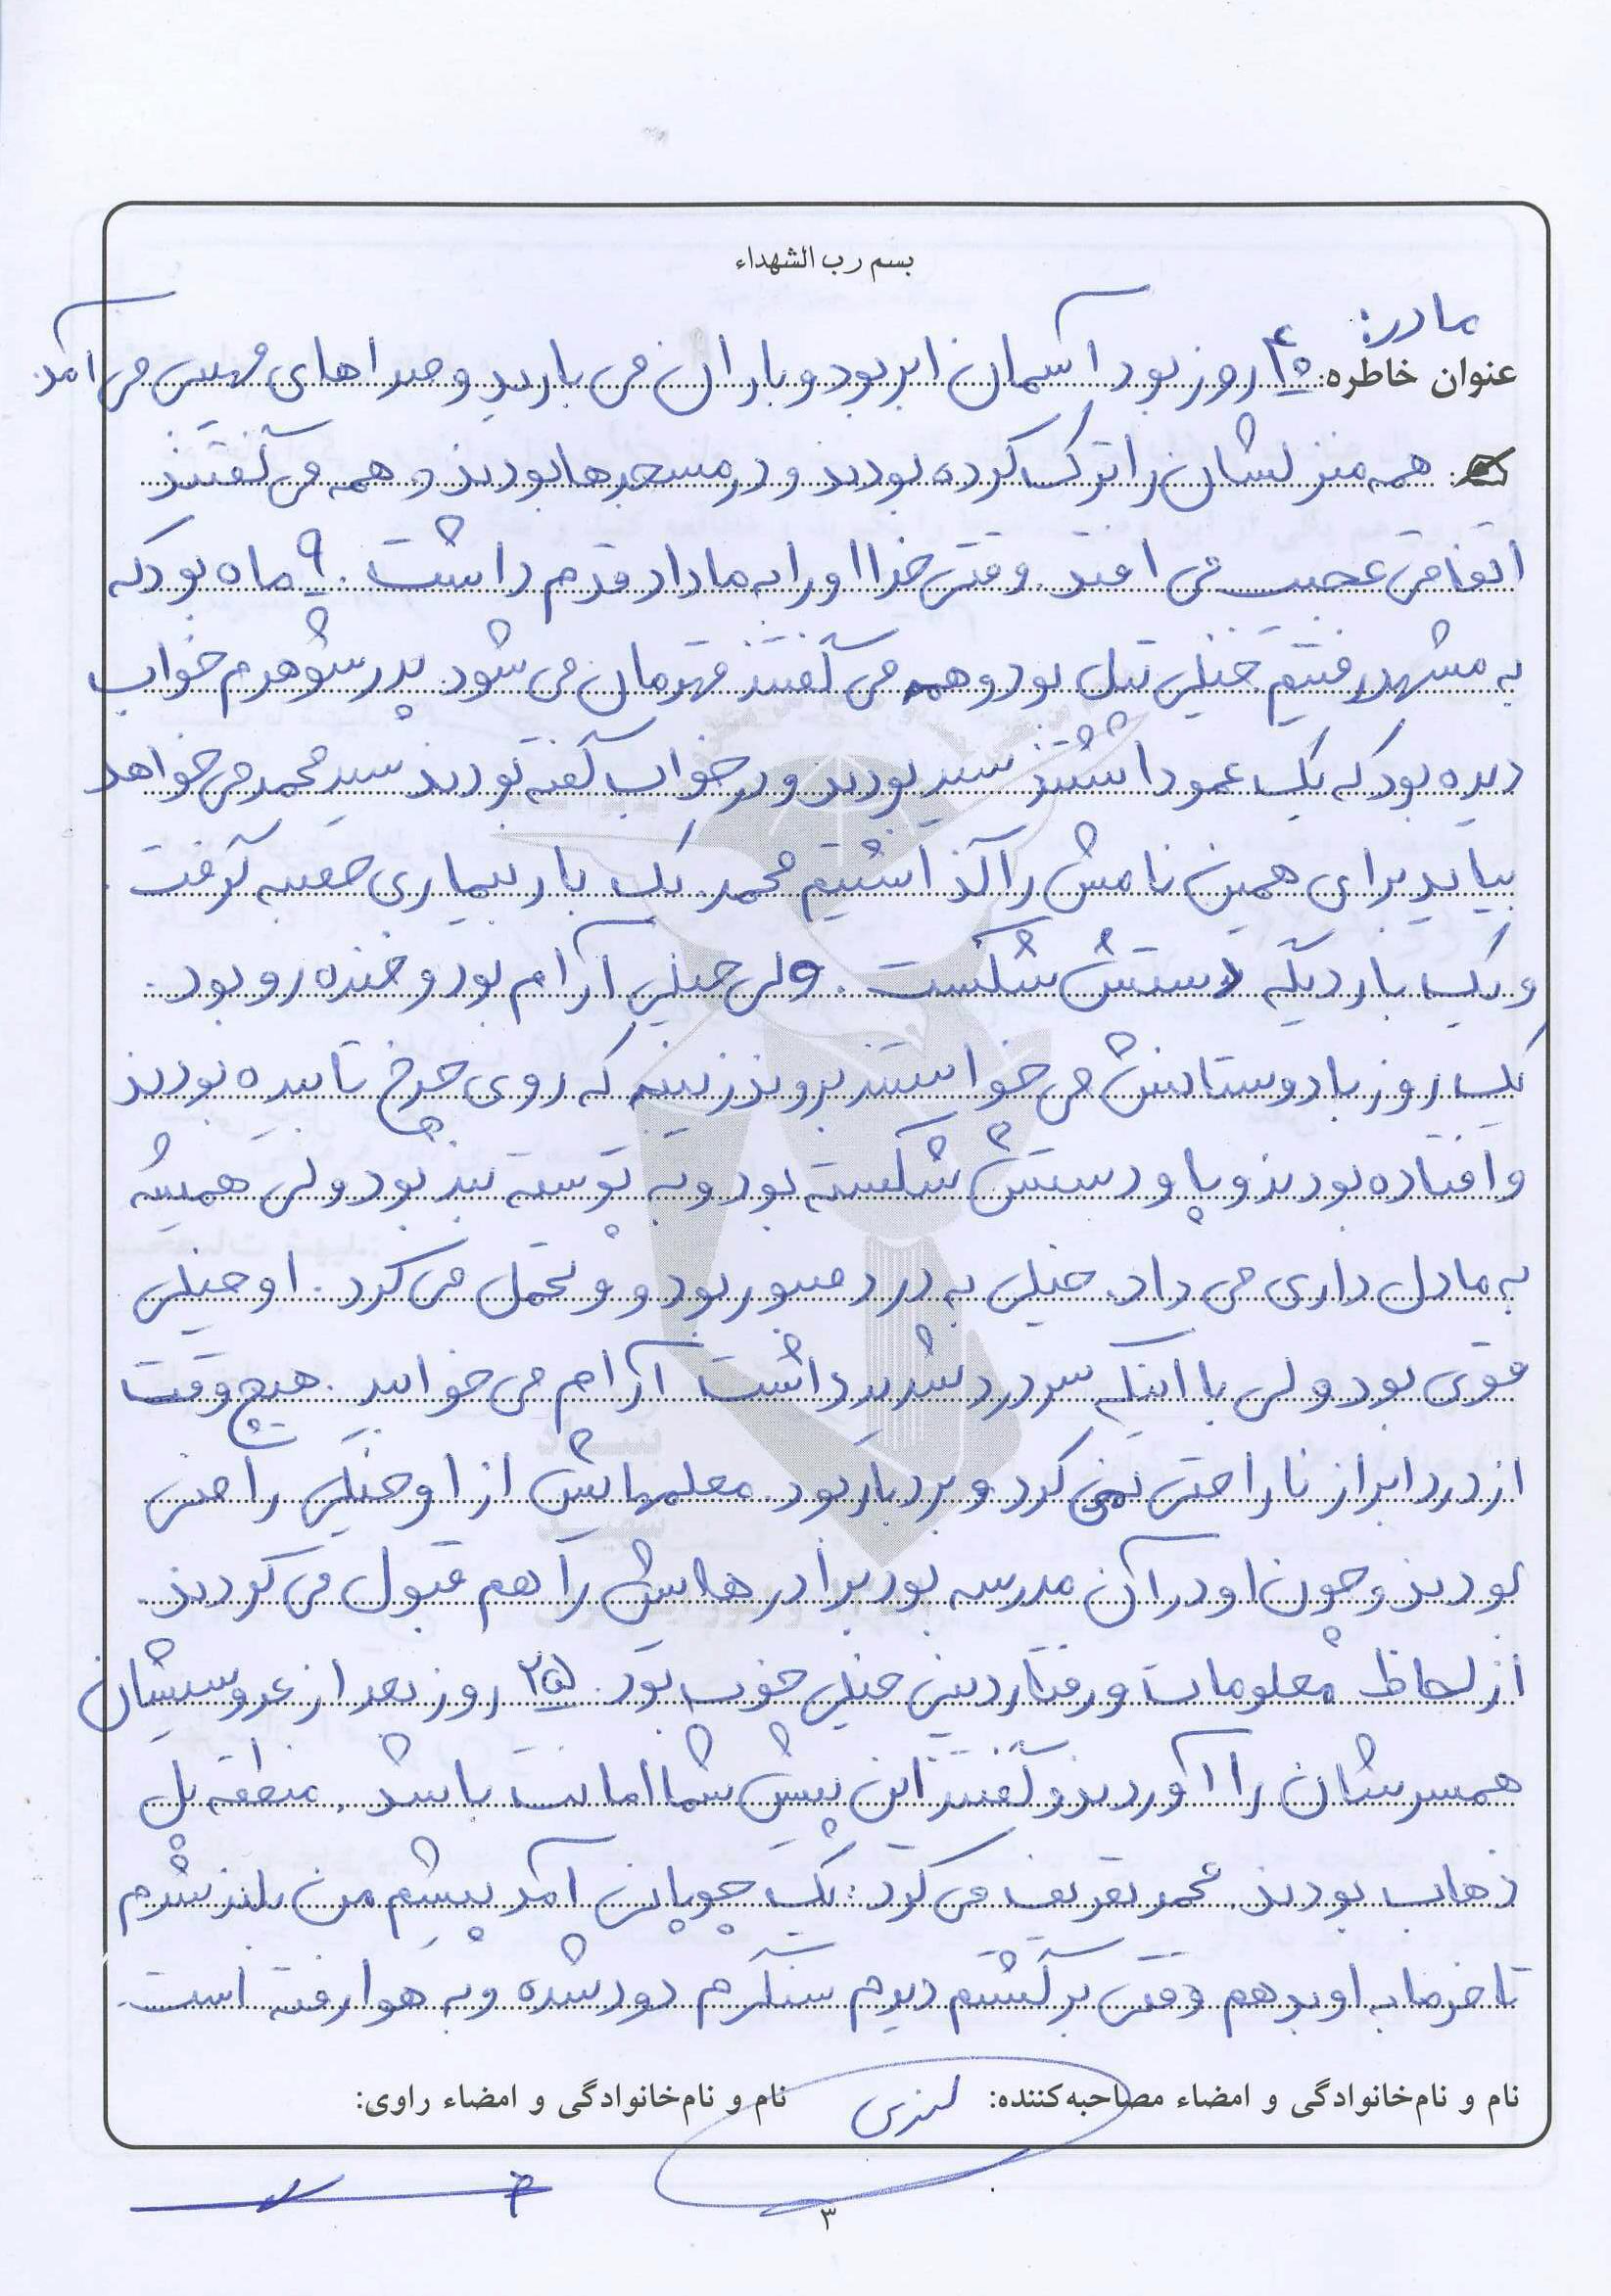 بسم رب الشهداء
مادر:
عنوان خاطره: ۴۰ روز بود آسمان ابر بود و باران می بارید و صداهای مهیبی می آمد.
همه منزلشان را ترک کرده بودند و در مسجدها بودند و همه می گفتند
اتفاقی عجیب می افتد. وقتی خدا او را به ما داد قدم داشت. ۹ ماه بود که
به مشهد رفتیم خیلی تپل بود و همه می گفتند قهرمان می شود. پدر شوهرم خواب
دیده بود که یک عمو داشتند سید بودند و در خواب گفته بودند سید محمد می خواهد
بیاید برای همین نامش را گذاشتیم محمد. یک بار بیماری حصبه گرفت.
و یک بار دیگه دستش شکست. ولی خیلی آرام بود و خنده رو بود.
یک روز با دوستانش می خواستند بروند زینبیه که روی چرخ تابیده بودند
و افتاده بودند و پا و دستش شکسته بود و به پوسته بند بود ولی همیشه
به ما دل داری می داد. خیلی به درد صبور بود و و تحمل می کرد. او خیلی
قوی بود ولی با اینکه سر درد شدید داشت آرام می خوابید. هیچ وقت
از درد ابراز ناراحتی نمی کرد و بردبار بود. معلمهایش از او خیلی راضی
بودند و چون او در آن مدرسه بود برادرهایش را هم قبول می کردند.
از لحاظ معلومات و رفتار دینی خیلی خوب بود. ۲۵ روز بعد از عروسیشان
همسرشان را آوردند و گفتند این پیش شما امانت باشد. منطقه پل
ذهاب بودند. محمد تعریف می کرد: یک چوپانی آمد پیشم من بلند شدم
تا خرما به او بدهم وقتی برگشتم دیدم سنگرم دود شده و به هوا رفته است.
نام و نام‌خانوادگی و امضاء مصاحبه‌کننده:
نام و نام‌خانوادگی و امضاء راوی:
۳